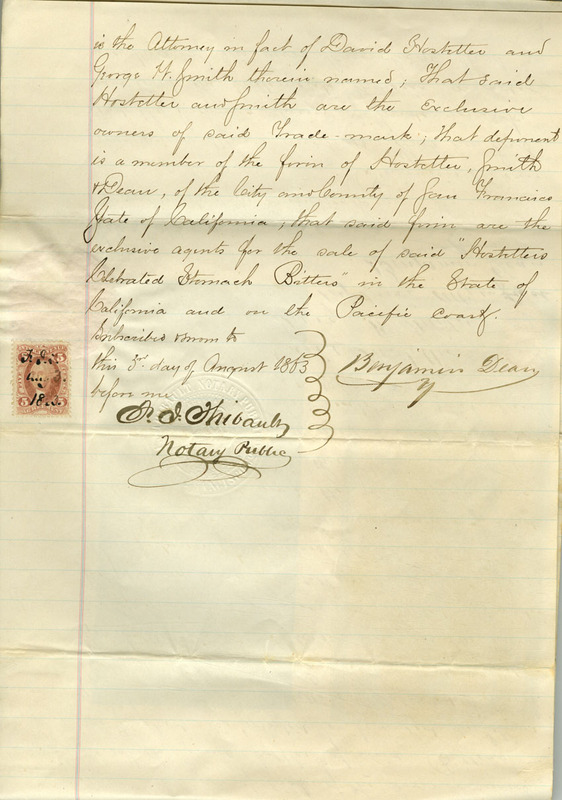 is the Attorney in fact of David Hostetter and
George W. Smith therein named; That said
Hostetter and Smith are the exclusive
owners of said Trade-mark; that deponent
is a member of the firm of Hostetter, Smith
& Dean, of the City and County of San Francisco
State of California; that said firm are the
exclusive agents for the sale of said "Hostetters
Clebrated Stomach Bitters" in the State of
California and on the Pacific coast.
Subscribed & sworn to
this 3d day of August 1863
Benjamin Dean
before me
F. J. Thibault
Notary Public
5 5